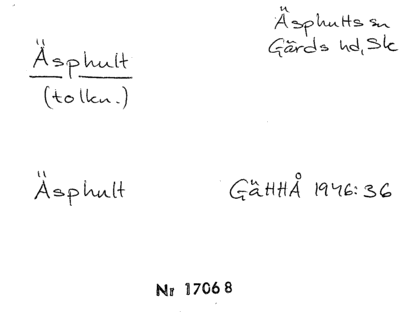 Äsphults sn
Gärds hd, Sk
Äsphult
(tolkn.)
Äsphult
GäHHÅ 1946:36
Nr 17068